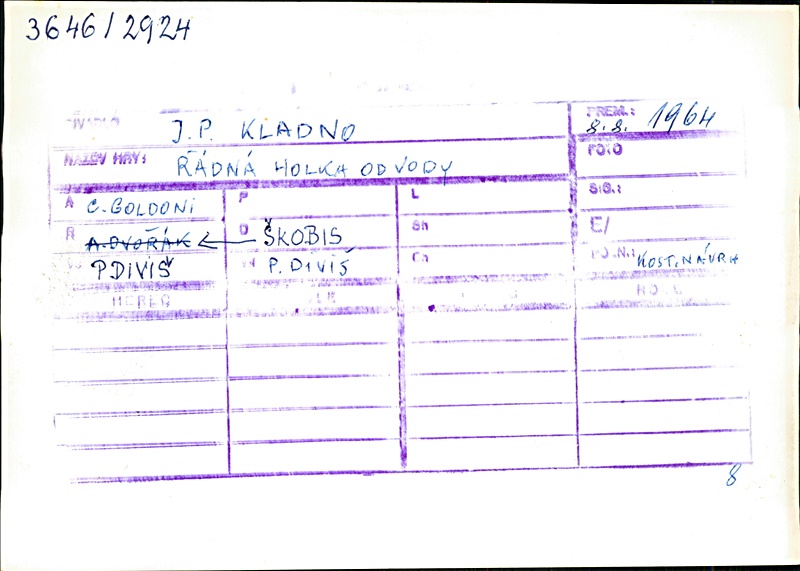 3646/2924
DIVADLO J.P. KLADNO PREM.: 8.8. 1964
NÁZEV HRY: ŘÁDNÁ HOLKA OD VODY FOTO
A C. GOLDONI P L SIG.:
R A. DVOŘÁK ← D ŠKOBIS Sh E/
P DIVIŠ P. DIVIŠ Ch POZN.: KOST. NÁVRH
HEREC ROLE
8